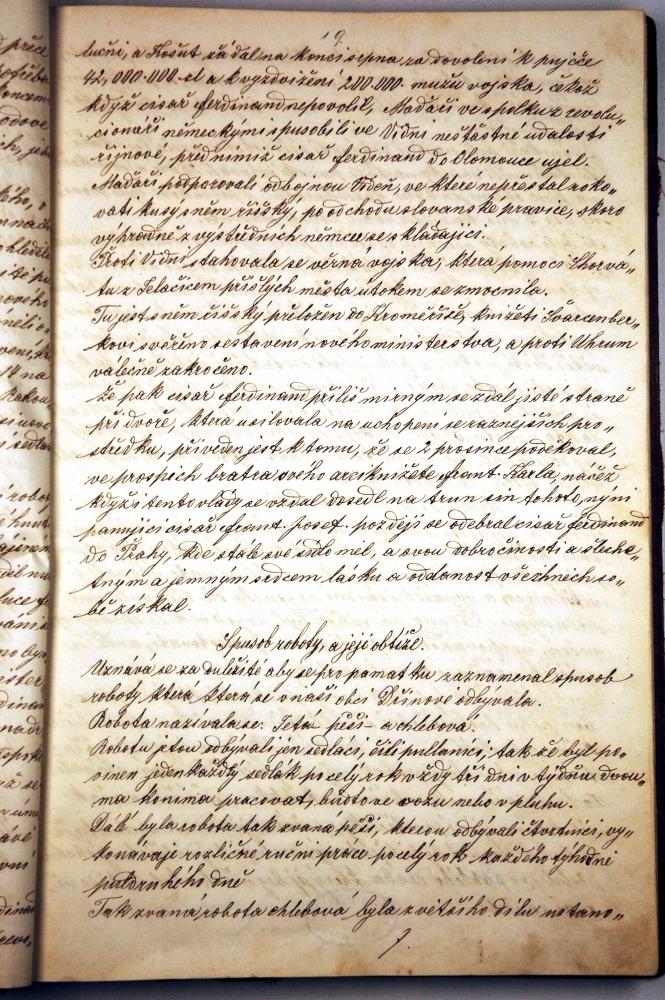 19.
luční, a Košut žádal na konci srpna za dovolení k pujčce
42,000.000 zl a k vyzdvižení 200.000. mužu vojska, čehož
když císař Ferdinand nepovolil, Maďaři ve spolku z revolu„
cionáři německými spusobili ve Vídni nešťastné udalosti
říjnové, před nimiž císař Ferdinand do Olomouce ujel.
Maďaři podporovali odbojnou Vídeň, ve které nepřestal roko„
vati kusý sněm říšský, po odchodu slovanské pravice, skoro
výhradně z vystředních němcu se skládající.
Proti Vídni stahovala se věrna vojska, která pomocí Chorvá„
tu z Jelačicem přišlých města utokem se zmocnila.
Tu jest sněm říšský přeložen do Kroměříže, knížeti Švarcenber„
kovi svěřeno sestavení nového ministerstva, a proti Uhrum
válečně zakročeno.
Že pak císař Ferdinand příliš mirným se zdál jisté straně
při dvoře, která usilovala na uchopení se raznejších pro„
středku, přiveden jest k tomu, že se 2 prosince poděkoval,
ve prospěch bratra svého arciknížete Frant. Karla, načež
když i tento vlády se vzdal dosedl na trun sin tohoto, nýni
panující císař Frant. Josef. později se odebral císař Ferdinand
do Prahy, kde stále své sídlo měl, a svou dobročinosti a šleche„
tnym a jemnym srdcem lásku a oddanost všechněch so„
bě získal.
Spusob roboty, a její obtíže.
Uznává se za duležité aby se pro pamatku zaznamenal spusob
roboty ktera ktera se v naší obci Dušnové odbývala.
Robota nazivala se: Jetá pěší - a chlebová.
Robotu jetou odbývali jen sedláci, čili pullanici; tak že byl po„
vinen jeden každý sedlák po celý rok vždy tři dni v týdnu dvou„
ma konima pracovat, buďto ve vozu nebo v pluhu.
Dále byla robota tak zvaná pěší, kterou odbývali čtvrtnici, vy„
konávaje rozličné ruční práce po celý rok každého tyhodně
puldruhého dně
Tak zvaná robota chlebová byla z většího dílu ustano„
7.